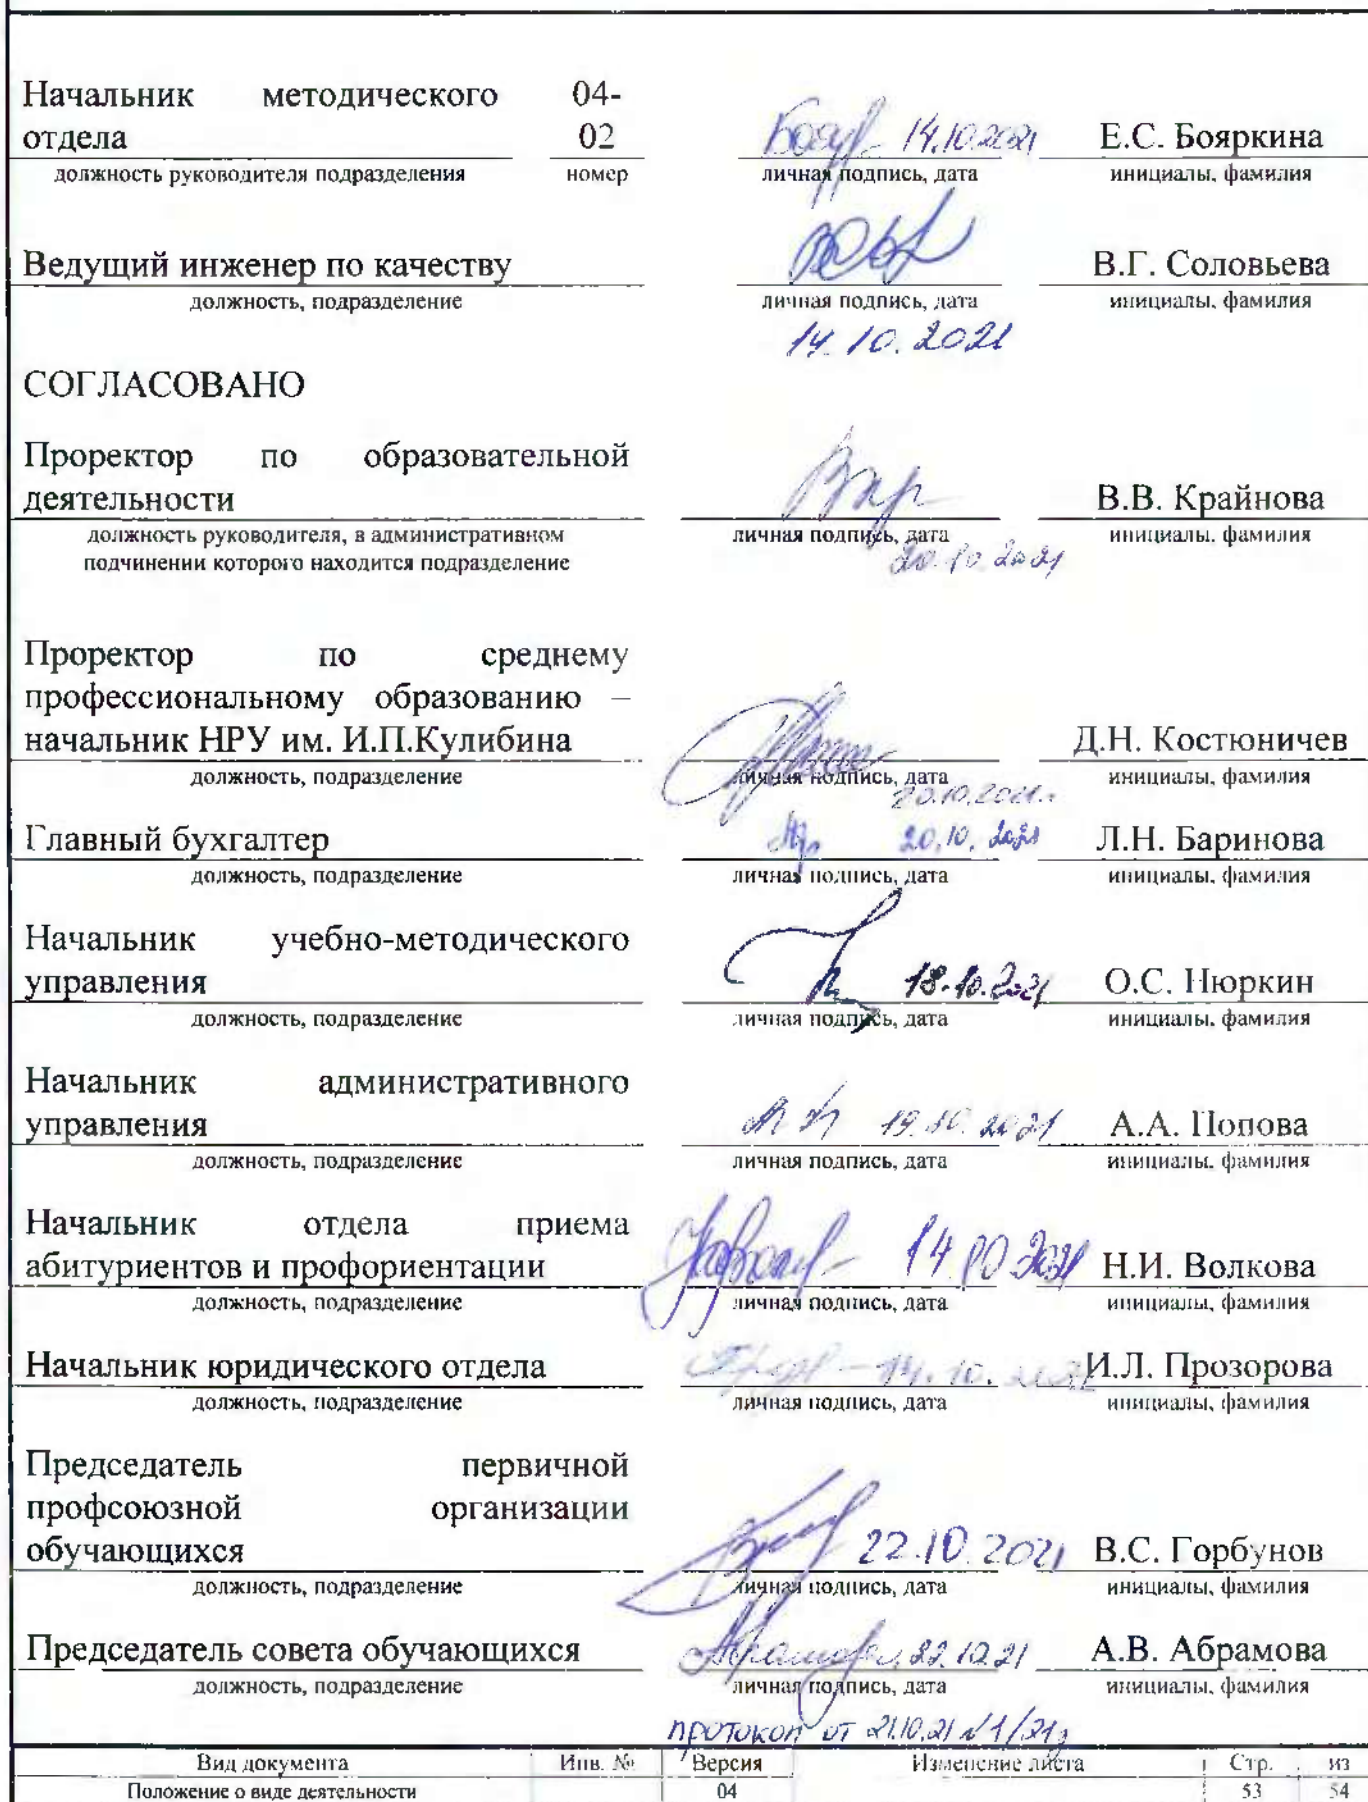 Начальник методического 04-
отдела 02 14.10.2021 Е.С. Бояркина
должность руководителя подразделения номер личная подпись, дата инициалы, фамилия
Ведущий инженер по качеству В.Г. Соловьева
должность, подразделение личная подпись, дата инициалы, фамилия
14.10.2021
СОГЛАСОВАНО
Проректор по образовательной
деятельности В.В. Крайнова
должность руководителя, в административном личная подпись, дата инициалы, фамилия
подчинении которого находится подразделение 20.10.2021
Проректор по среднему
профессиональному образованию –
начальник НРУ им. И.П.Кулибина Д.Н. Костюничев
должность, подразделение личная подпись, дата инициалы, фамилия
20.10.2021г.
Главный бухгалтер 20.10.2021 Л.Н. Баринова
должность, подразделение личная подпись, дата инициалы, фамилия
Начальник учебно-методического
управления 18.10.2021 О.С. Нюркин
должность, подразделение личная подпись, дата инициалы, фамилия
Начальник административного
управления 19.10.2021 А.А. Попова
должность, подразделение личная подпись, дата инициалы, фамилия
Начальник отдела приема
абитуриентов и профориентации 14.10.2021 Н.И. Волкова
должность, подразделение личная подпись, дата инициалы, фамилия
Начальник юридического отдела 14.10. И.Л. Прозорова
должность, подразделение личная подпись, дата инициалы, фамилия
Председатель первичной
профсоюзной организации
обучающихся 22.10.2021 В.С. Горбунов
должность, подразделение личная подпись, дата инициалы, фамилия
Председатель совета обучающихся 22.10.21 А.В. Абрамова
должность, подразделение личная подпись, дата инициалы, фамилия
протокол от 21.10.21 №1/21
Вид документа Инв. № Версия Изменение листа Стр. из
Положение о виде деятельности 04 53 54